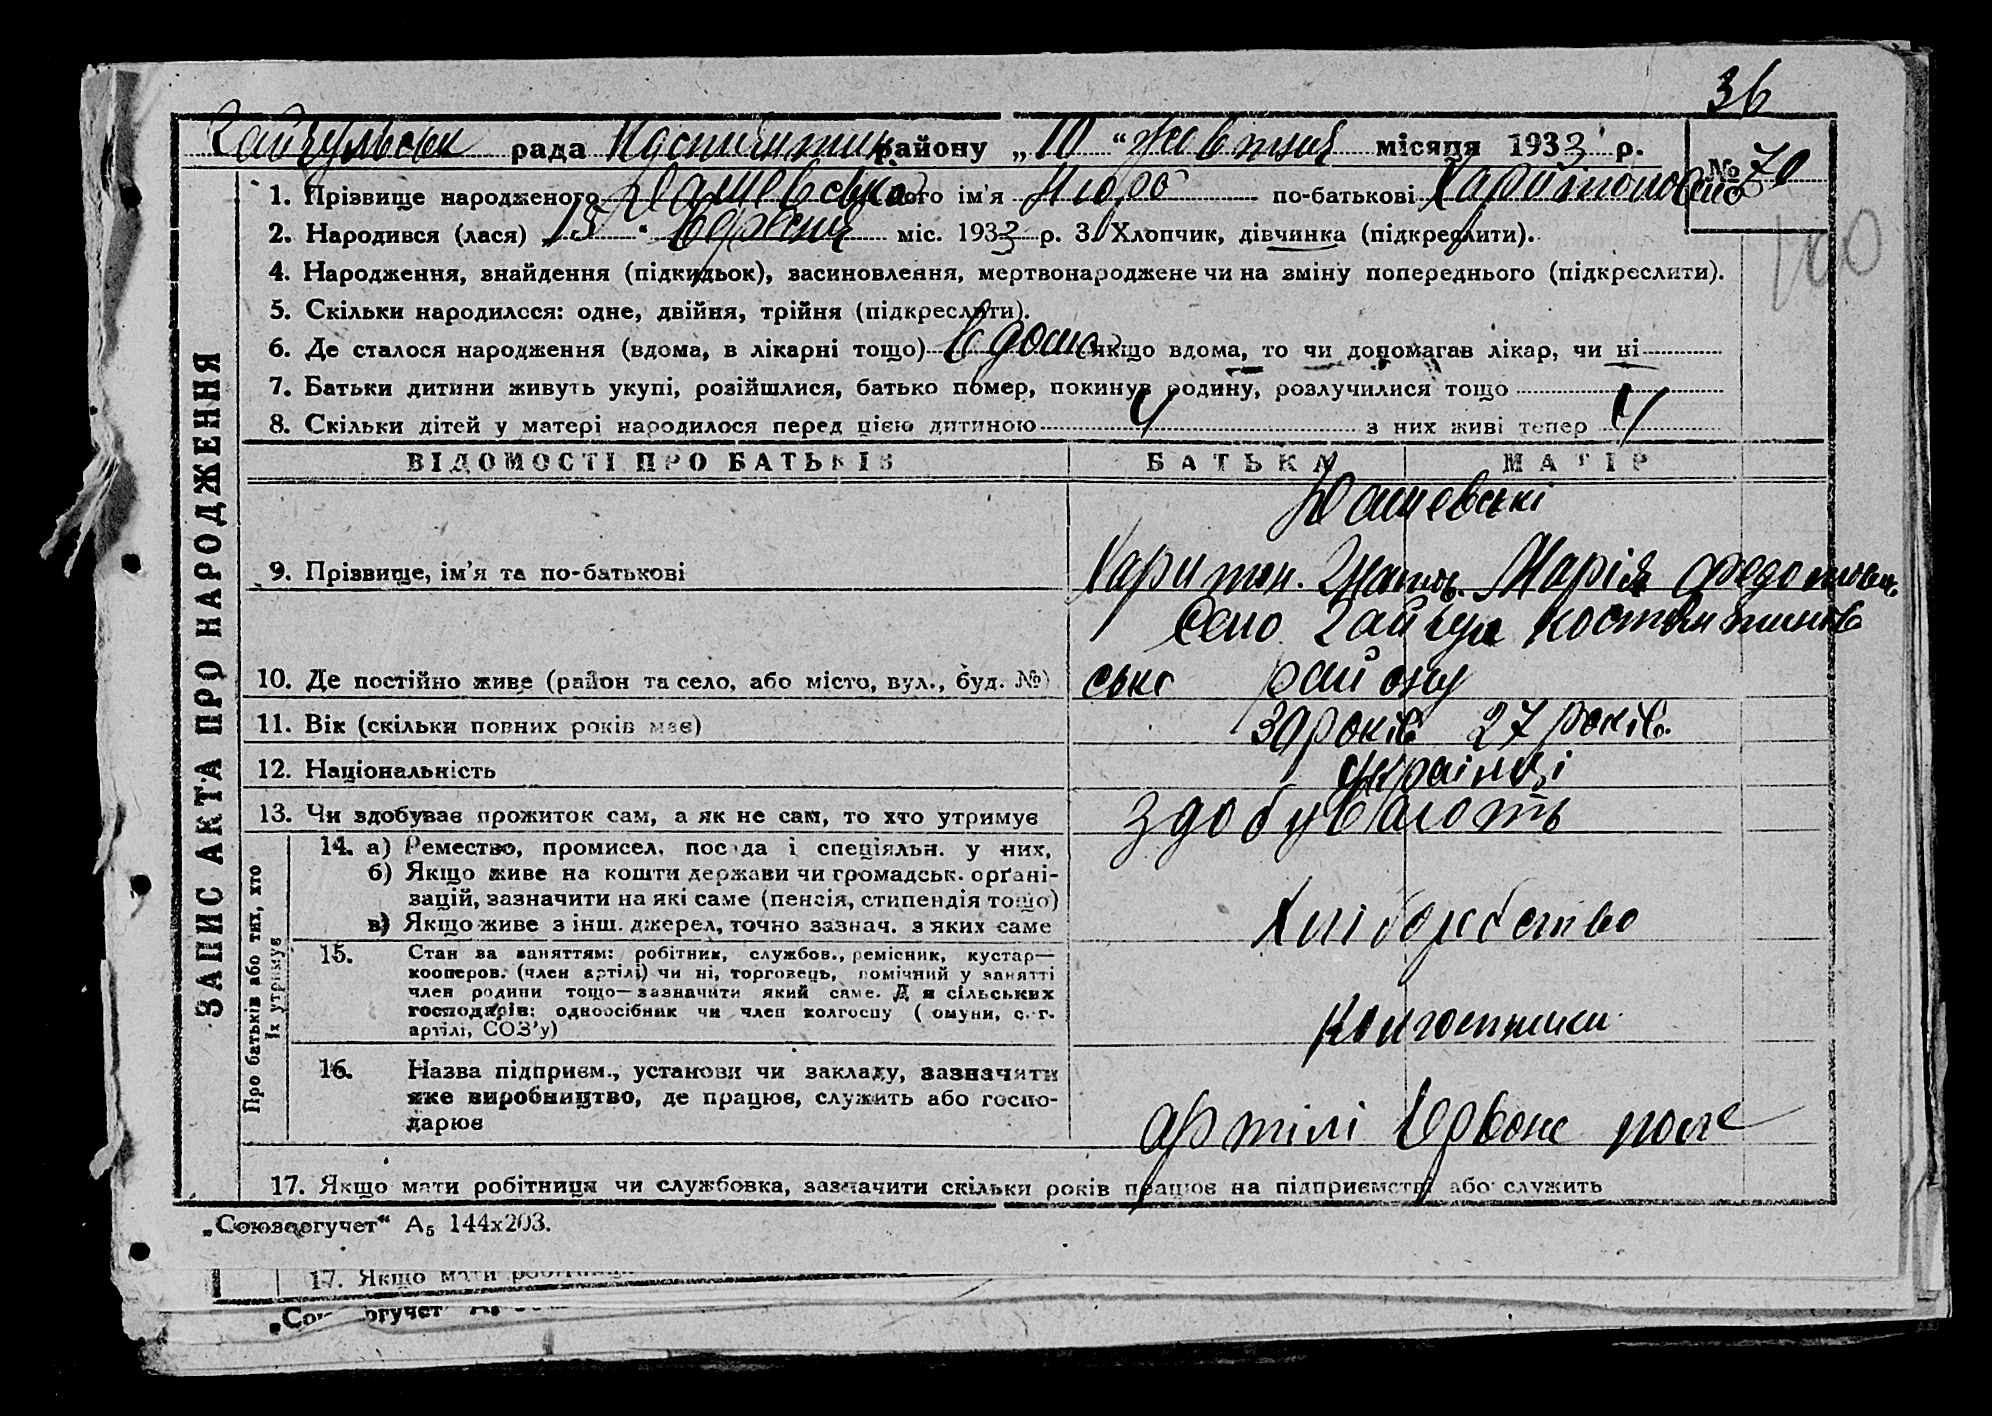 36
рада району „10“ жовтня місяця 1933 р.
№ 70
1. Прізвище народженого його ім'я Нюра по-батькові Харитоновна
100
2. Народився (лася) „15“ вересня міс. 1933 р. 3. Хлопчик, дівчинка (підкреслити).
4. Народження, знайдення (підкидьок), засиновлення, мертвонароджене чи на зміну попереднього (підкреслити).
5. Скільки народилося: одне, двійня, трійня (підкреслити).
6. Де сталося народження (вдома, в лікарні тощо) вдома якщо вдома, то чи допомагав лікар, чи ні
7. Батьки дитини живуть укупі, розійшлися, батько помер, покинув родину, розлучилися тощо
8. Скільки дітей у матері народилося перед цією дитиною 4 з них живі тепер 4
ВІДОМОСТІ ПРО БАТЬКІВ БАТЬКА МАТІР
Юшевські
9. Прізвище, ім'я та по-батькові Харитон. Марія Федотовна
село Гайчул Костянтинів
10. Де постійно живе (район та село, або місто, вул., буд. №) ське району
11. Вік (скільки повних років має) 30 років 27 років.
12. Національність українці
13. Чи здобуває прожиток сам, а як не сам, то хто утримує здобувають
14. а) Ремество, промисел, посада і спеціяльн. у них,
б) Якщо живе на кошти держави чи громадськ. орґані-
зацій, зазначити на які саме (пенсія, стипендія тощо)
в) Якщо живе з інш. джерел, точно зазнач. з яких саме Хліборобство
15. Стан за заняттям: робітник, службов., ремісник, кустар—
кооперов. (член артілі) чи ні, торговець, помічний у занятті
член родини тощо—зазначити який саме. Для сільських
господарів: одноосібник чи член колгоспу (комуни, с.-г.
артілі, СОЗ'у) колгоспники
16. Назва підприєм., установи чи закладу, зазначити
яке виробництво, де працює, служить або госпо-
дарює артілі Червоне поле
17. Якщо мати робітниця чи службовка, зазначити скільки років працює на підприємстві або служить
ЗАПИС АКТА ПРО НАРОДЖЕННЯ
Про батьків або тих, хто
їх утримує
„Союзоргучет“ А5 144х203.
17. Якщо мати